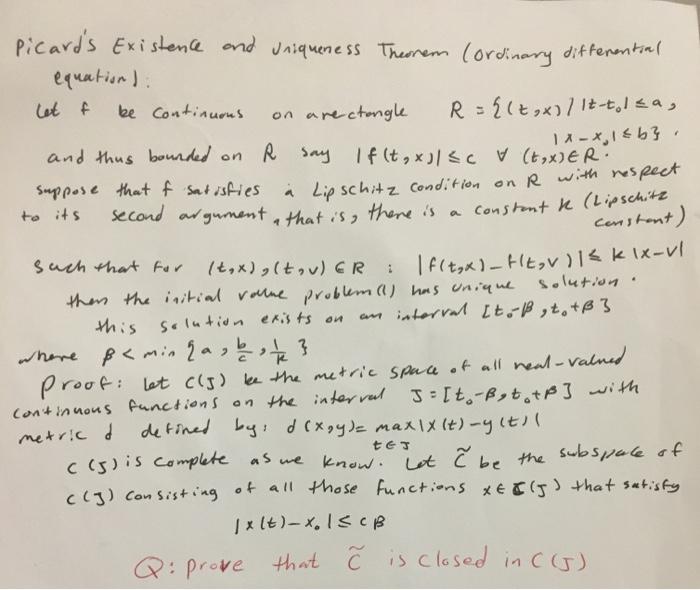 Picard's Existence and Uniqueness Theorem (ordinary differential
equation):
Let f be continuous on a rectangle R = {(t,x) / |t-t₀| ≤ a,
|x-x₀| ≤ b},
and thus bounded on R say |f(t,x)| ≤ c ∀ (t,x) ∈ R.
Suppose that f satisfies a Lipschitz condition on R with respect
to its second argument, that is, there is a constant k (Lipschitz
constant)
such that for (t,x),(t,v) ∈ R : |f(t,x)-f(t,v)| ≤ k|x-v|
then the initial value problem (1) has unique solution.
this solution exists on an interval [t₀-β, t₀+β]
where β < min {a, b/c, 1/k}
Proof: let C(J) be the metric space of all real-valued
continuous functions on the interval J = [t₀-β, t₀+β] with
metric d defined by: d(x,y) = max|x(t)-y(t)|
t∈J
C(J) is complete as we know. Let C̃ be the subspace of
C(J) consisting of all those functions x ∈ C(J) that satisfy
|x(t)-x₀| ≤ cβ
Q: prove that C̃ is closed in C(J)